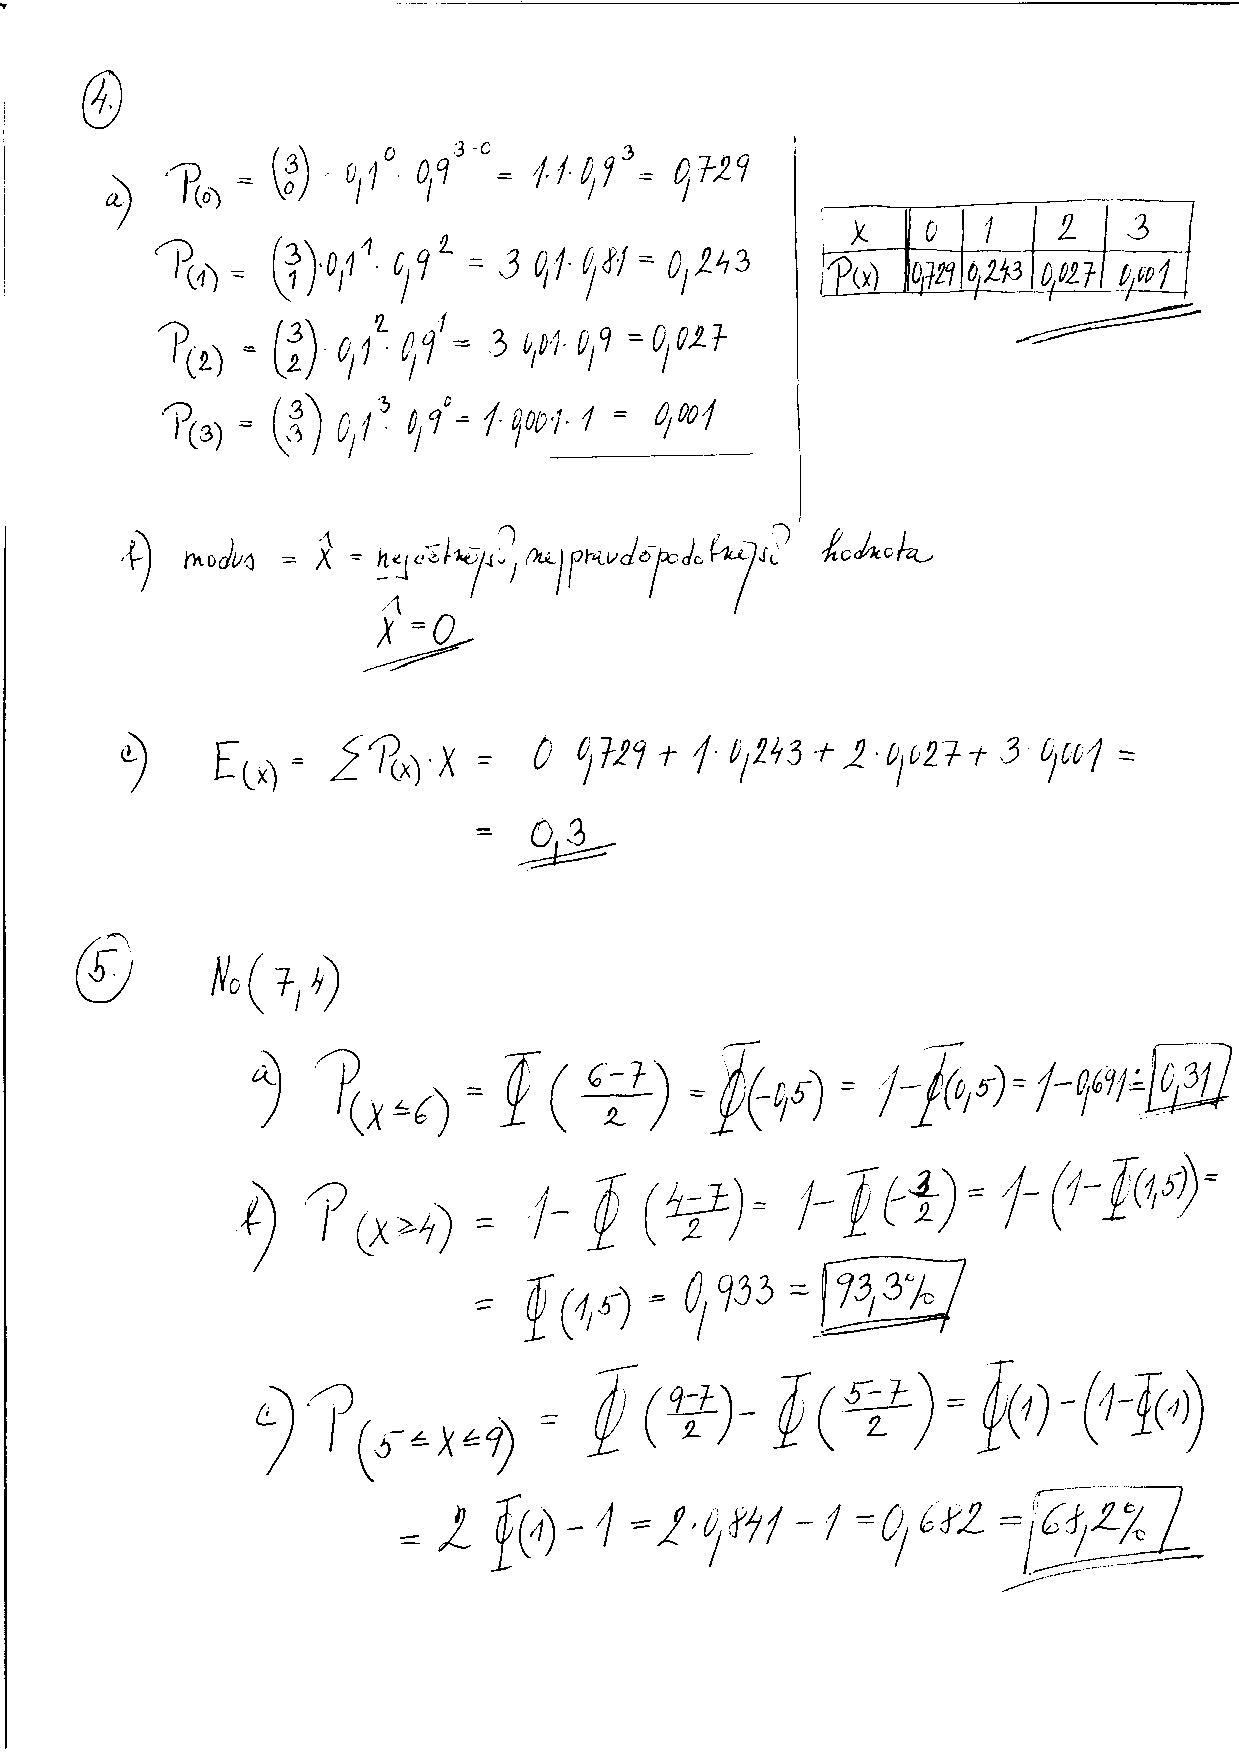 4.
a) P(0) = (3 0) · 0,1^0 · 0,9^3-0 = 1·1·0,9^3 = 0,729
P(1) = (3 1) · 0,1^1 · 0,9^2 = 3 0,1 · 0,81 = 0,243
P(2) = (3 2) · 0,1^2 · 0,9^1 = 3 0,01 · 0,9 = 0,027
P(3) = (3 3) 0,1^3 · 0,9^0 = 1 · 0,001 · 1 = 0,001
x 0 1 2 3
P(x) 0,729 0,243 0,027 0,001
b) modus = x̂ = nejčetnější, nejpravděpodobnější hodnota
x̂ = 0
c) E(x) = ΣP(x) · x = 0 0,729 + 1 · 0,243 + 2 · 0,027 + 3 · 0,001 =
= 0,3
5. No(7,4)
a) P(x≤6) = Φ((6-7)/2) = Φ(-0,5) = 1-Φ(0,5) = 1-0,691 ≐ 0,31
b) P(x≥4) = 1-Φ((4-7)/2) = 1-Φ(-3/2) = 1-(1-Φ(1,5)) =
= Φ(1,5) = 0,933 = 93,3%
c) P(5≤x≤9) = Φ((9-7)/2) - Φ((5-7)/2) = Φ(1) - (1-Φ(1))
= 2Φ(1) - 1 = 2·0,841 - 1 = 0,682 = 68,2%